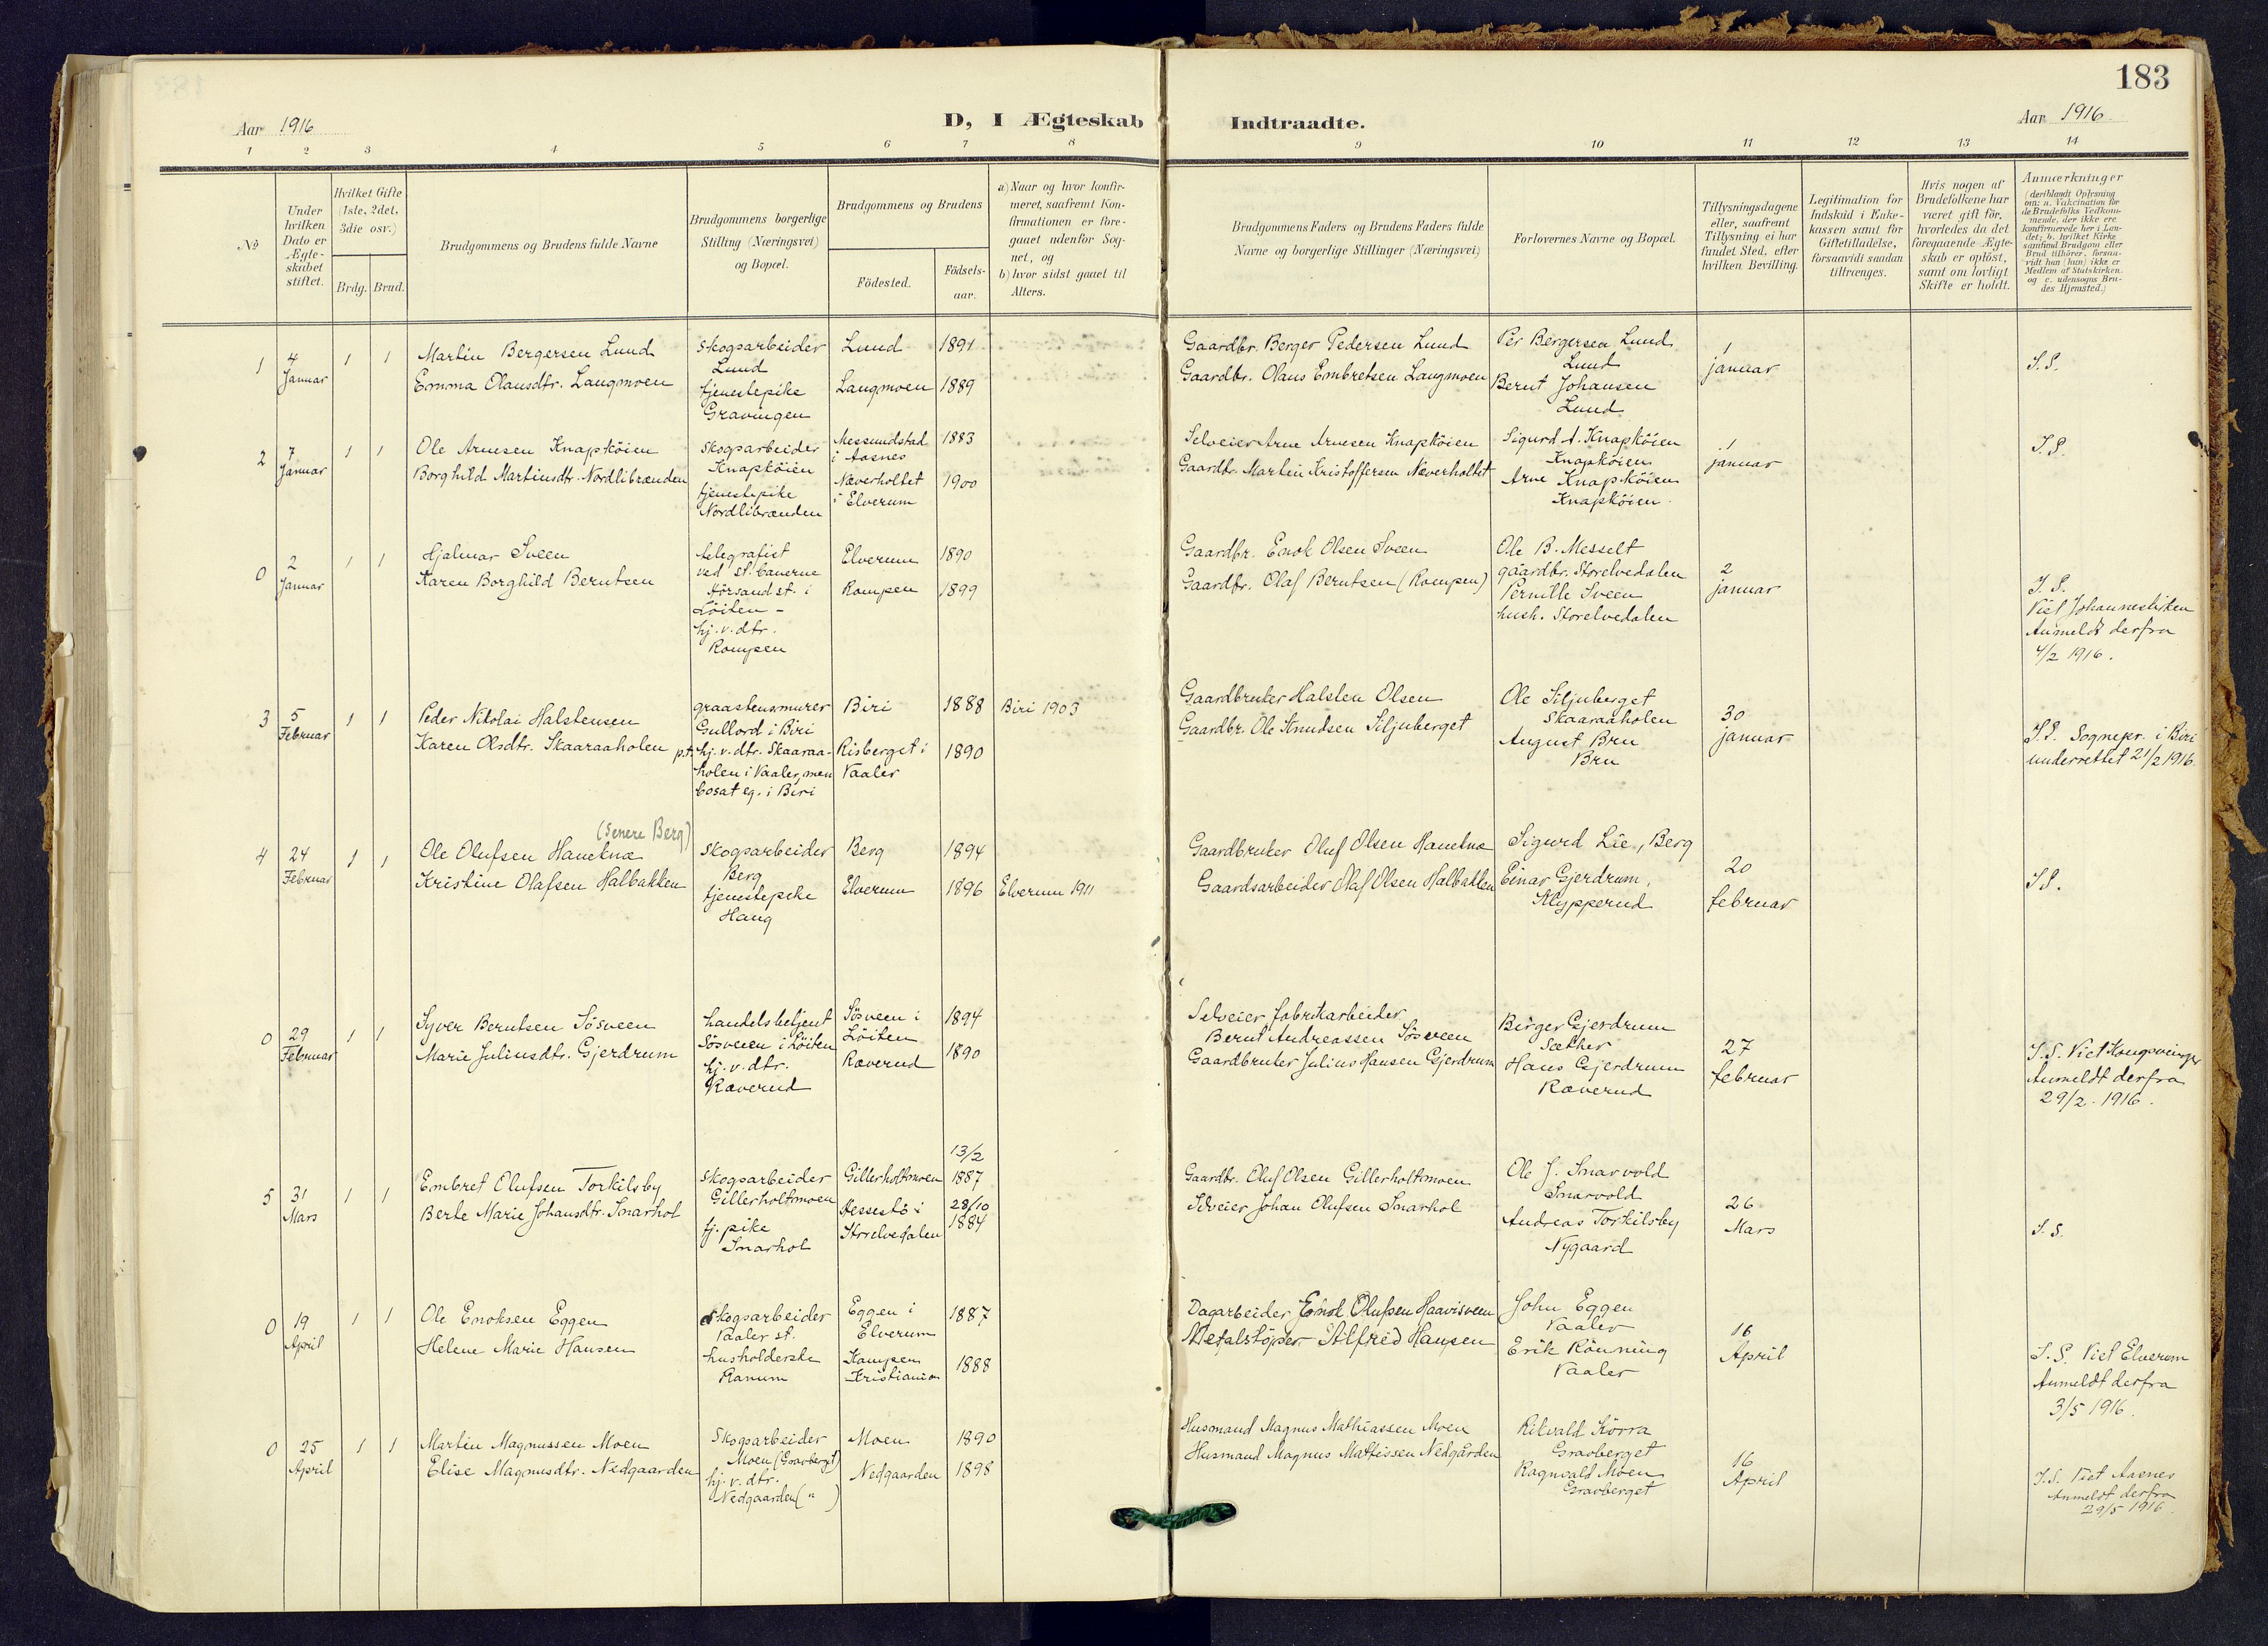 183
Aar 1916
D, I Ægteskab Indtraadte.
Aar 1916.
1 2 3 4 5 6 7 8 9 10 11 12 13 14
No
Under
hvilken
Dato er
Ægte-
skabet
stiftet.
Hvilket Gifte
(1ste, 2det,
3die osv.)
Brdg. Brud.
Brudgommens og Brudens fulde Navne
Brudgommens borgerlige
Stilling (Næringsvei)
og Bopæl.
Brudgommens og Brudens
Fødested.
Fødsels-
aar.
a) Naar og hvor konfir-
meret, saafremt Kon-
firmationen er fore-
gaaet udenfor Sog-
net, og
b) hvor sidst gaaet til
Alters.
Brudgommens Faders og Brudens Faders fulde
Navne og borgerlige Stillinger (Næringsvei)
Forlovernes Navne og Bopæl.
Tillysningsdagene
eller, saafremt
Tillysning ei har
fundet Sted, efter
hvilken Bevilling.
Legitimation for
Indskud i Enke-
kassen samt for
Giftetilladelse,
forsaavidt saadan
tiltrænges.
Hvis nogen af
Brudefolkene har
været gift før,
hvorledes da det
foregaaende Ægte-
skab er opløst,
samt om lovligt
Skifte er holdt.
Anmærkninger
(deriblandt Oplysning
om: a. Vakcination for
de Brudefolks Vedkom-
mende, der ikke ere
konfirmerede her i Lan-
det; b. hvilket Kirke-
samfund Brudgom eller
Brud tilhører, forsaa-
vidt han (hun) ikke er
Medlem af Statskirken
og c. udensogns Bru-
des Hjemsted.)
1
4
Januar
1 1
Martin Bergersen Lund
Emma Olausdtr. Langmoen
Skogsarbeider
Lund
tjenestepike
Gravingen
Lund
Langmoen
1891
1889
Gaardbr. Berger Pedersen Lund
Gaardbr. Olaus Embretsen Langmoen
Per Bergersen Lund
Lund
Bernt Johansen
Lund
1
januar
I.S.
2
7
Januar
1 1
Ole Arnesen Knapköien
Borghild Martinsdtr. Nordlibrænden
Skogsarbeider
Knapköien
tjenestepike
Nordlibrænden
Messundstad
i Aasnes
Næverholtet
i Elverum
1883
1900
Selveier Arne Arnesen Knapköien
Gaardbr. Martin Kristoffersen Næverholtet
Sigurd A. Knapköien
Knapköien
Arne Knapköien
Knapköien.
1
januar
I.S.
0
2
Januar
1 1
Hjalmar Sveen
Karen Borghild Berntsen
telegrafist
ved st. banerne
st. i
Löiten -
hj. v. dtr.
Rompen
Elverum
Rompen
1890
1899
Gaardbr. Enok Olsen Sveen
Gaardbr. Olaf Berntsen (Rompen)
Ole B. Messelt
gaardbr. Storelvedalen
Pernille Sveen
hush. Storelvedalen
2
januar
I.S.
Viet Johanneskirken
Anmeldt derfra
4/2 1916.
3
5
Februar
1 1
Peder Nikolai Halstensen
Karen Olsdtr. Skaaraaholen
graastensmurer
Gullord i Biri
p.t. hj. v. dtr. Skaaraa-
holen i Vaaler, men
bosat eg. i Biri
Biri
Risberget i
Vaaler
1888
1890
Biri 1903
Gaardbruker Halsten Olsen
Gaardbr. Ole Knudsen Siljuberget
Ole Siljuberget
Skaaraaholen
August Bru
Bru
30
januar
I.S. Sognepr. i Biri
underrettet 21/2 1916.
4
24
Februar
1 1
(Senere Berg)
Ole Olufsen Haneknæ
Kristine Olafsen Halbakken
Skogsarbeider
Berg
tjenestepike
Haug
Berg
Elverum
1894
1896
Elverum 1911
Gaardbruker Oluf Olsen Haneknæ
Gaardsarbeider Olaf Olsen Halbakken
Sigurd Lie, Berg
Einar Gjerdrum,
Klypperud
20
februar
I.S.
0
29
Februar
1 1
Syver Berntsen Sösveen
Marie Juliusdtr. Gjerdrum
handelsbetjent
Sösveen i Löiten
hj. v. dtr.
Ræverud
Sösveen i
Löiten
Ræverud
1894
1890
Selveier fabrikarbeider
Bernt Andreassen Sösveen
Gaardbruker Julius Hansen Gjerdrum
Birger Gjerdrum
Sæther
Hans Gjerdrum
Ræverud
27
februar
I.S. Viet Kongsvinger
Anmeldt derfra
29/2. 1916.
5
31
Mars
1 1
Embret Olufsen Torkilsby
Berte Marie Johansdtr. Snarhol
Skogsarbeider
Gillerholtmoen
tj. pike
Snarhol
Gillerholtmoen
i
Storelvedalen
13/2
1887
28/10
1884
Gaardbr. Oluf Olsen Gillerholtmoen
Selveier Johan Olufsen Snarhol
Ole J. Snarvold
Snarvold
Andreas Torkilsby
Nygaard
26
Mars
I.S.
0
19
April
1 1
Ole Enoksen Eggen
Helene Marie Hansen
Skogsarbeider
Vaaler st.
husholderske
Ranum
Eggen i
Elverum
Kampen
Kristiania
1887
1888
Dagarbeider Enok Olufsen Haavisveen
Metalstöper Alfred Hansen
John Eggen
Vaaler
Erik Rönning
Vaaler
16
April
I.S. Viet Elverum
Anmeldt derfra
3/5 1916.
0
25
April
1 1
Martin Magnussen Moen
Elise Magnusdtr. Nedgaarden
Skogsarbeider
Moen (Gravberget)
hj. v. dtr.
Nedgaarden ( " )
Moen
Nedgaarden
1890
1898
Husmand Magnus Mathiassen Moen
Husmand Magnus Mattissen Nedgården
Rikvald Körra
Gravberget
Ragnvald Moen
Gravberget
16
April
I.S. Viet Aasnes
Anmeldt derfra
29/5 1916.